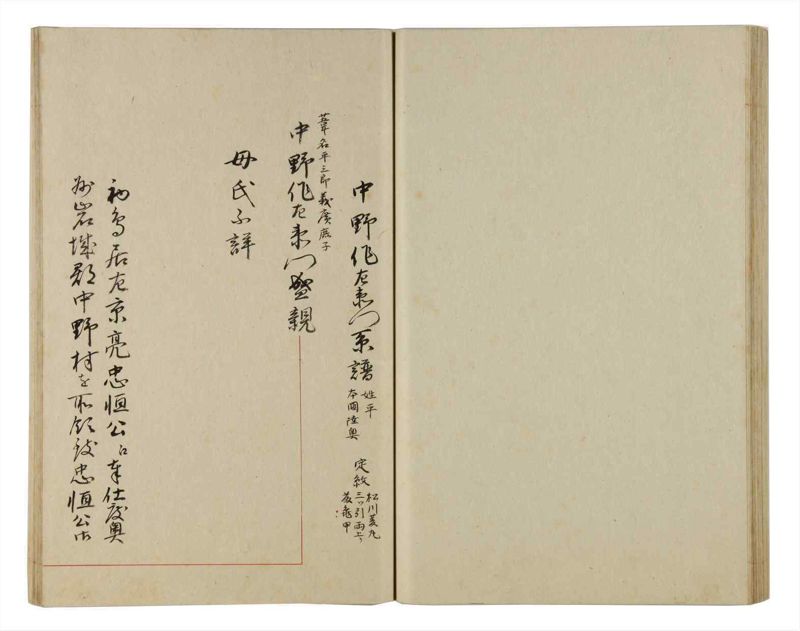 中野作左衛門系譜
姓平
本国陸奥
定紋
松川菱九
三ツ引両上り
藤亀甲
葦名平三郎義廣庶子
中野作左衛門盛親
母氏不詳
初鳥居左京亮忠恒公江奉仕後奥
州岩城郡中野村を所領後忠恒公御